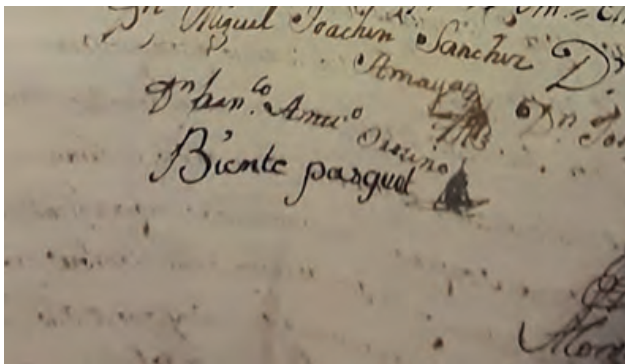 Dn Miguel Joachin Sanchez D.
Amaya
Dn Fran.co Antt.o Osuino
Dn Jo
Biente pasquel
Mor